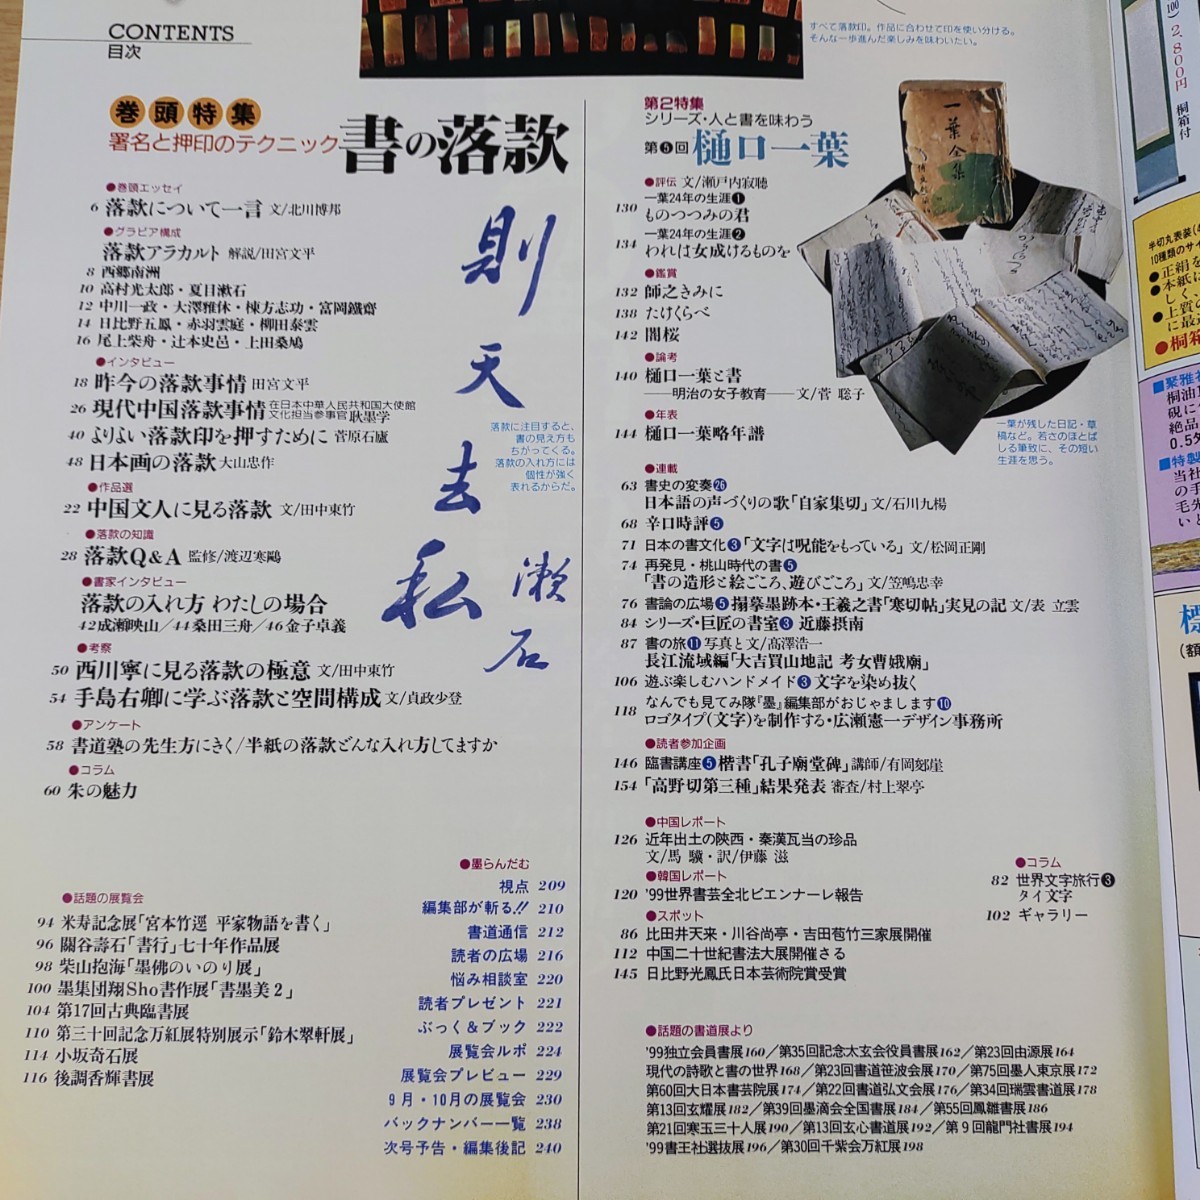 CONTENTS
目次
すべて落款印。作品に合わせて印を使い分ける。
そんな一歩進んだ楽しみを味わいたい。
巻頭特集
署名と押印のテクニック
書の落款
●巻頭エッセイ
6 落款について一言 文/北川博邦
●グラビア構成
落款アラカルト 解説/田宮文平
8 西郷南洲
10 高村光太郎・夏目漱石
12 中川一政・大澤雅休・棟方志功・富岡鐵齋
14 日比野五鳳・赤羽雲庭・柳田泰雲
16 尾上柴舟・辻本史邑・上田桑鳩
●インタビュー
18 昨今の落款事情 田宮文平
26 現代中国落款事情 在日本中華人民共和国大使館
文化担当参事官 耿墨学
40 よりよい落款印を押すために 菅原石廬
48 日本画の落款 大山忠作
●作品選
22 中国文人に見る落款 文/田中東竹
●落款の知識
28 落款Q&A 監修/渡辺寒鷗
●書家インタビュー
落款の入れ方 わたしの場合
42成瀬映山/44桑田三舟/46金子卓義
●考察
50 西川寧に見る落款の極意 文/田中東竹
54 手島右卿に学ぶ落款と空間構成 文/貞政少登
●アンケート
58 書道塾の先生方にきく/半紙の落款どんな入れ方してますか
●コラム
60 朱の魅力
則天去私
漱石
落款に注目すると、
書の見え方も
ちがってくる。
落款の入れ方には
個性が強く
表れるからだ。
●話題の展覧会
94 米寿記念展「宮本竹逕 平家物語を書く」
96 關谷壽石「書行」七十年作品展
98 柴山抱海「墨佛のいのり展」
100 墨集団翔Sho書作展「書墨美2」
104 第17回古典臨書展
110 第三十回記念万紅展特別展示「鈴木翠軒展」
114 小坂奇石展
116 後調香輝書展
●墨らんだむ
視点 209
編集部が斬る!! 210
書道通信 212
読者の広場 216
悩み相談室 220
読者プレゼント 221
ぶっく&ブック 222
展覧会ルポ 224
展覧会プレビュー 229
9月・10月の展覧会 230
バックナンバー一覧 238
次号予告・編集後記 240
第2特集
シリーズ・人と書を味わう
第❺回 樋口一葉
●評伝 文/瀬戸内寂聴
一葉24年の生涯❶
130 ものつつみの君
一葉24年の生涯❷
134 われは女成けるものを
●鑑賞
132 師之きみに
138 たけくらべ
142 闇桜
●論考
140 樋口一葉と書
――明治の女子教育―― 文/菅 聡子
●年表
144 樋口一葉略年譜
一葉全集
一葉が残した日記・草
稿など。若さのほとば
しる筆致に、その短い
生涯を思う。
●連載
63 書史の変奏㉖
日本語の声づくりの歌「自家集切」文/石川九楊
68 辛口時評❺
71 日本の書文化❸「文字は呪能をもっている」文/松岡正剛
74 再発見・桃山時代の書❺
「書の造形と絵ごころ、遊びごころ」文/笠嶋忠幸
76 書論の広場❺搨摹墨跡本・王羲之書「寒切帖」実見の記 文/表 立雲
84 シリーズ・巨匠の書室❸ 近藤摂南
87 書の旅⓫ 写真と文/髙澤浩一
長江流域編「大吉買山地記 考女曹娥廟」
106 遊ぶ楽しむハンドメイド❸ 文字を染め抜く
118 なんでも見てみ隊『墨』編集部がおじゃまします❿
ロゴタイプ(文字)を制作する・広瀬憲一デザイン事務所
●読者参加企画
146 臨書講座❺ 楷書「孔子廟堂碑」講師/有岡䣓崖
154 「高野切第三種」結果発表 審査/村上翠亭
●中国レポート
126 近年出土の陝西・秦漢瓦当の珍品
文/馬 驥・訳/伊藤 滋
●韓国レポート
120 '99世界書芸全北ビエンナーレ報告
●スポット
86 比田井天来・川谷尚亭・吉田苞竹三家展開催
112 中国二十世紀書法大展開催さる
145 日比野光鳳氏日本芸術院賞受賞
●コラム
82 世界文字旅行❸
タイ文字
102 ギャラリー
●話題の書道展より
'99独立会員書展160/第35回記念太玄会役員書展162/第23回由源展164
現代の詩歌と書の世界168/第23回書道笹波会展170/第75回墨人東京展172
第60回大日本書芸院展174/第22回書道弘文会展176/第34回瑞雲書道展178
第13回玄耀展182/第39回墨滴会全国書展184/第55回鳳雛書展186
第21回寒玉三十人展190/第13回玄心書道展192/第9回龍門社書展194
'99書王社選抜展196/第30回千紫会万紅展198
2,800円 桐箱付
半切丸表装
10種類のサイ
●正絹を
●本紙に
しく、
●上質ひ
に最適
●桐箱
■聚雅
桐油
硯に
絶品
0.5
■特製
当社
の手
毛先
いと
標
(額